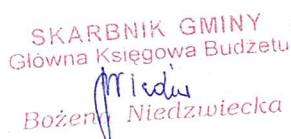 SKARBNIK GMINY
Główna Księgowa Budżetu
Bożena Niedzwiecka